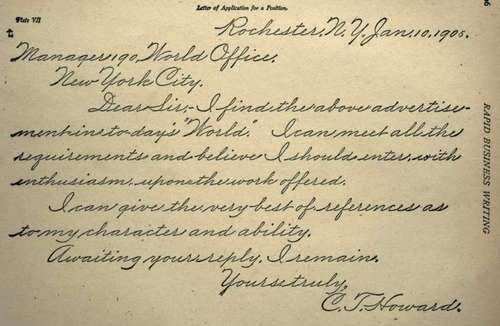 Letter of Application for a Position.
Plate VII
Rochester, N. Y. Jan. 10, 1905.
Manager 190, World Office,
New York City.
Dear Sir,- I find the above advertise-
ment in to-day's "World." I can meet all the
requirements and believe I should enter, with
enthusiasm, upon the work offered.
I can give the very best of references as
to my character and ability.
Awaiting your reply, I remain,
Yours truly,
C. T. Howard.
RAPID BUSINESS WRITING